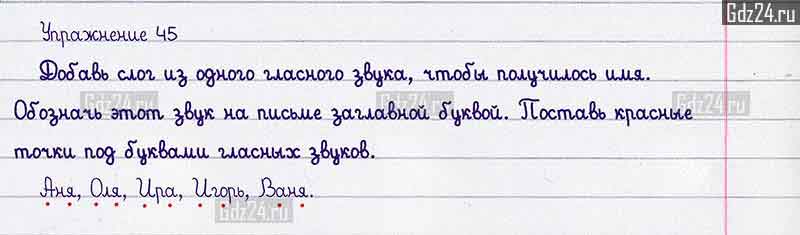 Gdz24.ru
Упражнение 45
Добавь слог из одного гласного звука, чтобы получилось имя.
Обозначь этот звук на письме заглавной буквой. Поставь красные
Gdz24.ru Gdz24.ru Gdz24.ru
точки под буквами гласных звуков.
Аня, Оля, Ира, Игорь, Ваня.
Gdz24.ru